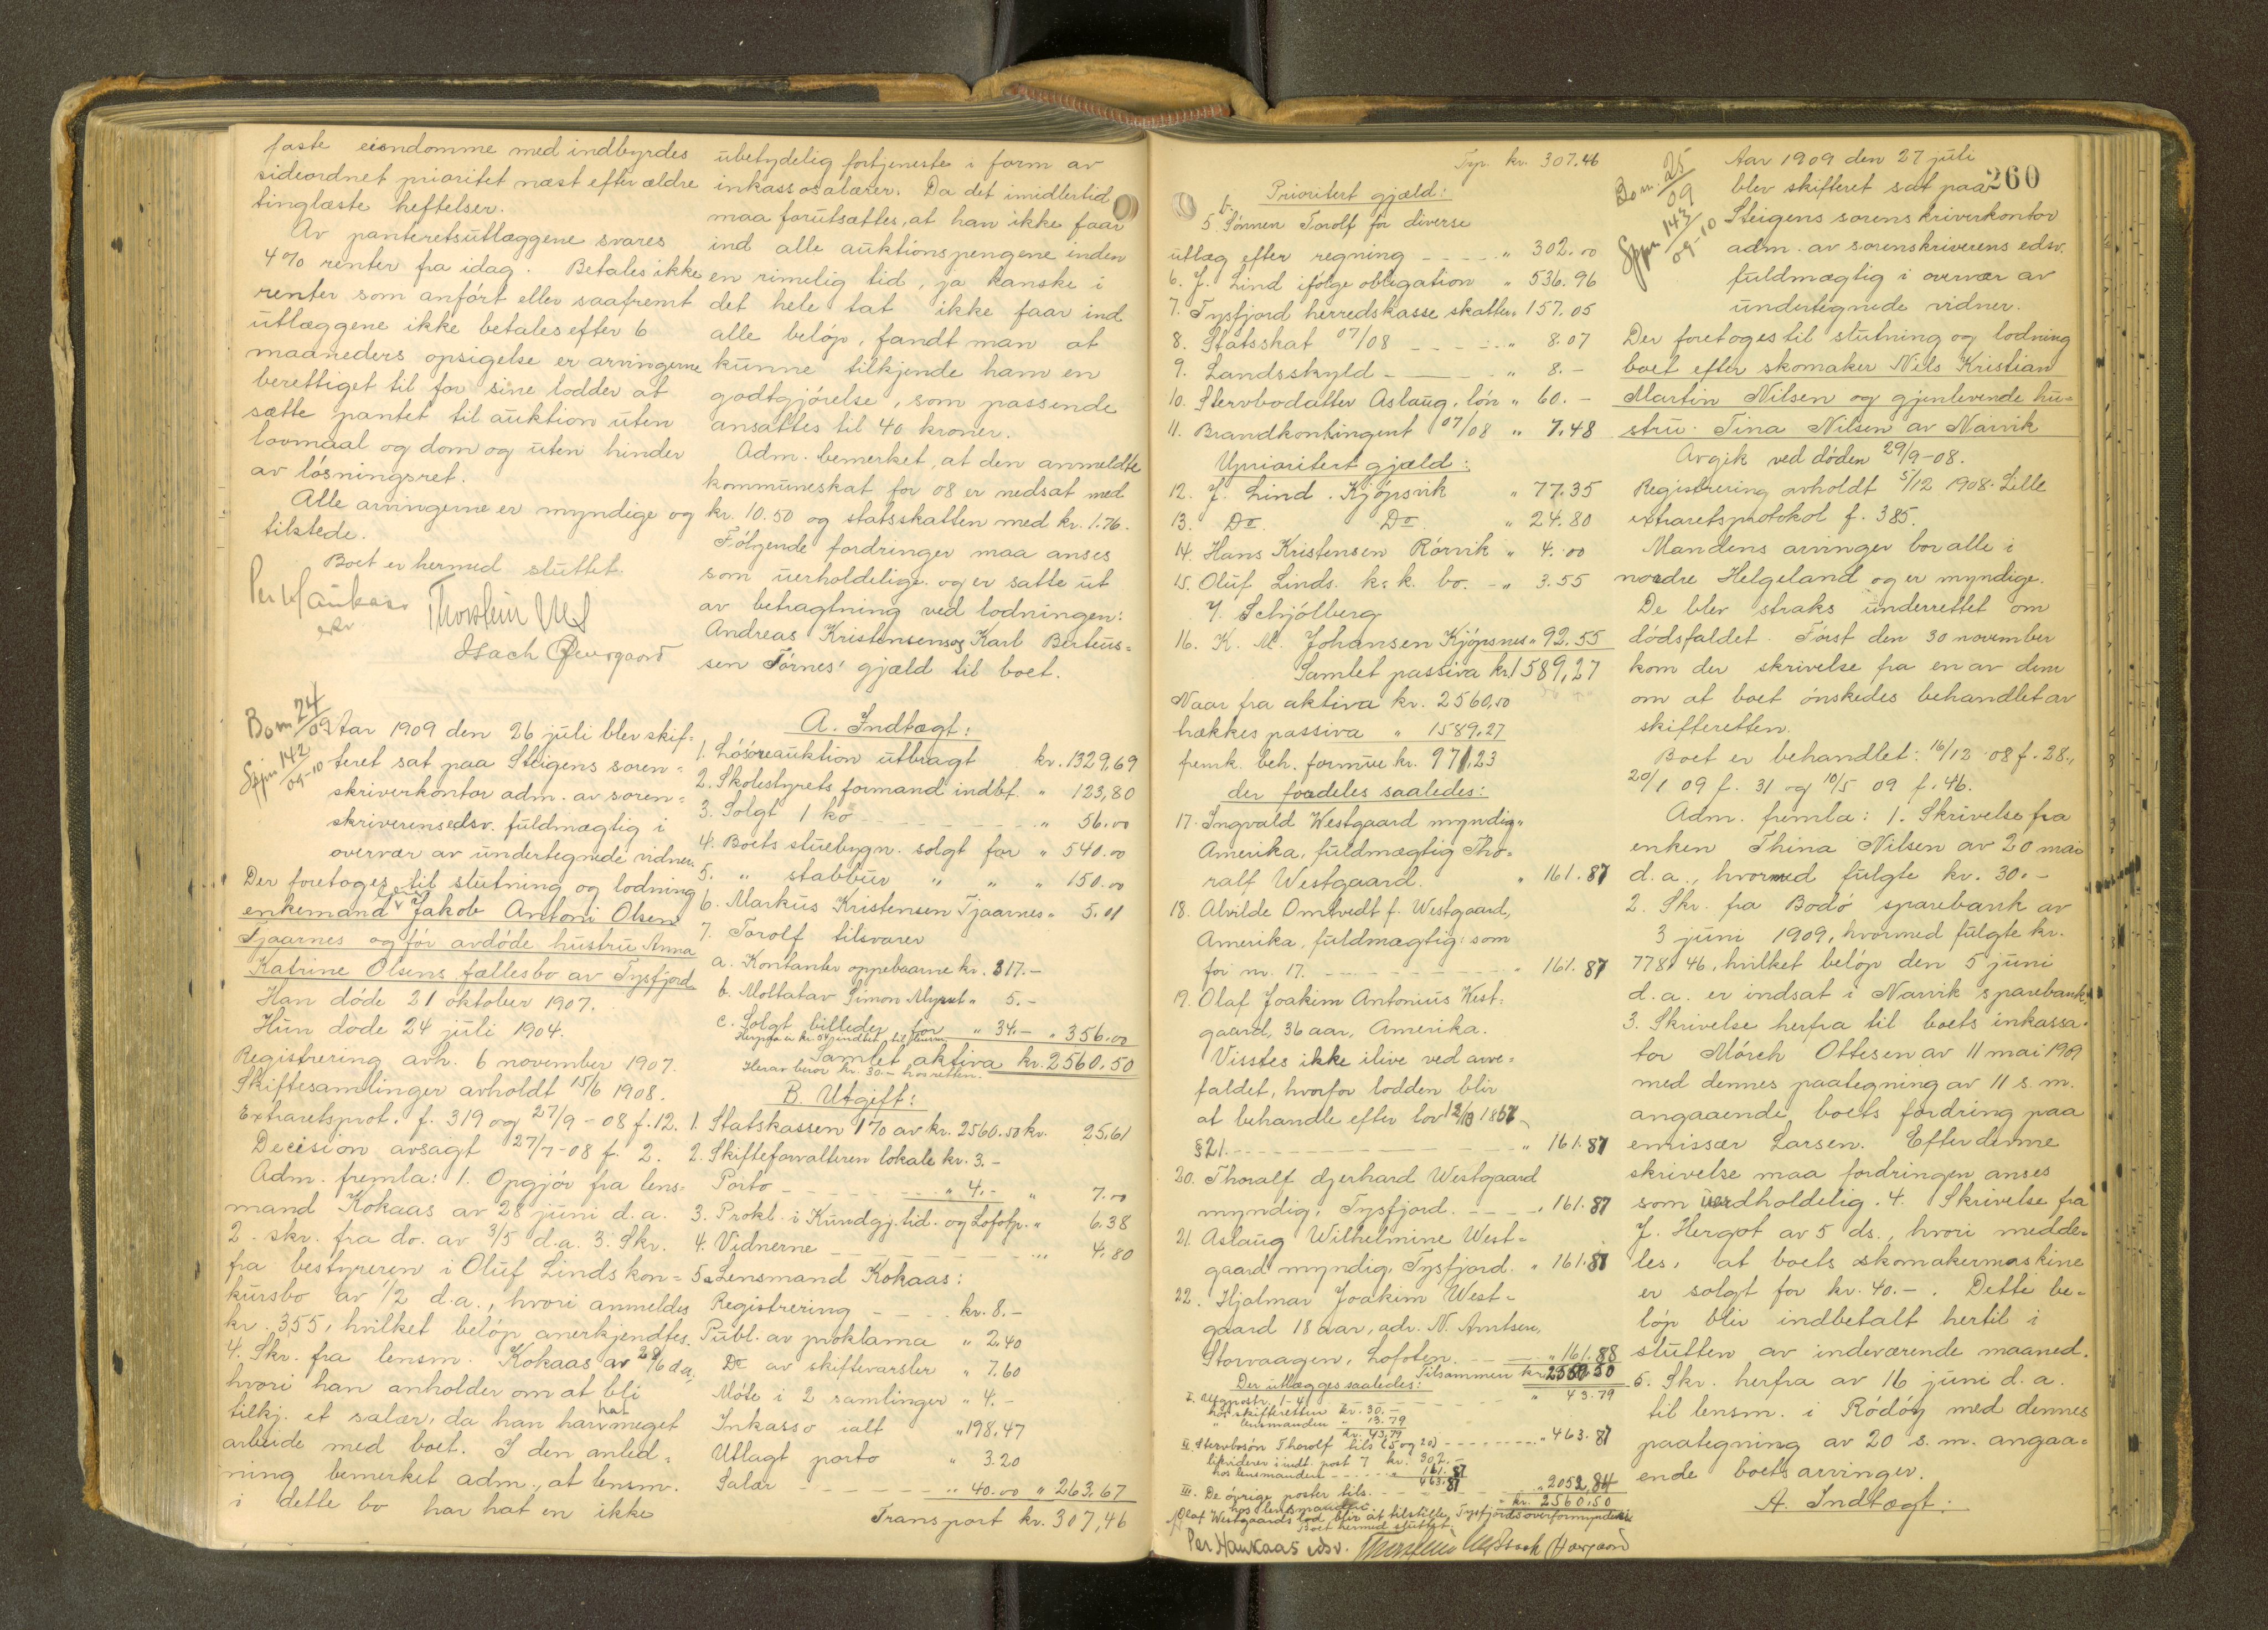 faste eiendomme med indbyrdes
sideordnet prioritet næst efter ældre
tinglæste heftelser.
Av panteretsutlæggene svares
4% renter fra idag. Betales ikke
renter som anført eller saafremt
utlæggene ikke betales efter 6
maaneders opsigelse er arvingerne
berettiget til for sine lodder at
sætte pantet til auktion uten
lovmaal og dom og uten hinder
av løsningsret.
Alle arvingerne er myndige og
tilstede.
Boet er hermed sluttet.
Per Haukaas
edsv. Thorstein
Isach
Bom 24/09 Aar 1909 den 26 juli blev skif-
Sfpr 142/09-10 teret sat paa Steigens soren-
skriverkontor adm. av soren-
skriverens edsv. fuldmægtig i
overvær av undertegnede vidner.
Der foretoges til slutning og lodning
enkemand Jakob Antoni Olsen
Tjaarnes og før avdøde hustru Anna
Katrine Olsens fællesbo av Tysfjord
Han døde 21 oktober 1907.
Hun døde 24 juli 1904.
Registrering avh. 6 november 1907.
Skiftesamlinger avholdt 15/6 1908.
Extraretsprot. f. 319 og 27/9-08 f. 12.
Decision avsagt 27/7-08 f. 2.
Adm. fremla: 1. Opgjør fra lens-
mand Kokaas av 28 juni d.a.
2. skr. fra do. av 3/5 d.a. 3. Skr.
fra bestyreren i Oluf Linds kon-
kursbo av 1/2 d.a., hvori anmeldes
kr. 3.55, hvilket beløp anerkjendtes.
4. Skr. fra lensm. Kokaas av 28/6 d.a.,
hvori han anholder om at bli
tilkj. et salær, da han har hat meget
arbeide med boet. I den anled-
ning bemerket adm., at lensm.
i dette bo har hat en ikke
ubetydelig fortjeneste i form av
inkassosalærer. Da det imidlertid
maa forutsættes, at han ikke faar
ind alle auktionspengene inden
en rimelig tid, ja kanske i
det hele tat ikke faar ind
alle beløp, fandt man at
kunne tilkjende ham en
godtgjørelse, som passende
ansattes til 40 kroner.
Adm. bemerket, at den anmeldte
kommuneskat for 08 er nedsat med
kr. 10.50 og statsskatten med kr. 1.76.
Følgende fordringer maa anses
som uerholdelige og er satte ut
av betragtning ved lodningen:
Andreas Kristensens og Karl Berteus-
sen Tørnes' gjæld til boet.
A. Indtægt:
1. Løsøreauktion utbragt kr. 1329,69
2. Skolestyrets formand indbt. " 123,80
3. Solgt 1 ko " 56.00
4. Boets stuebygn. solgt for " 540.00
5. " stabbur " " " 150.00
6. Markus Kristensen Tjaarnes " 5.01
7. Torolf tilsvarer
a. Kontanter oppebaarne kr. 317.-
b. Mottatav Simon " 5.-
c. Solgt billeder for " 34.- " 356.00
Samlet aktiva kr. 2560.50
Herav beror kr. 30.- hos retten.
B. Utgift:
1. Statskassen 1% av kr. 2560.50 kr. 25.61
2. Skifteforvalteren lokale kr. 3.-
Porto " 4.- " 7.00
3. Prokl. i Kundgj.tid. og Lofotp. " 6.38
4. Vidnerne " 4.80
5a Lensmand Kokaas:
Registrering kr. 8.-
Publ. av proklama " 2.40
Do av skiftevarsler " 7.60
Møte i 2 samlinger " 4.-
Inkasso ialt " 198,47
Utlagt porto " 3.20
Salær " 40.00 " 263.67
Transport kr. 307,46
Trp. kr. 307.46
Prioritert gjæld:
b.
5. Sønnen Torolf for diverse
utlæg efter regning " 302.00
6. J. Lind ifølge obligation " 536.96
7. Tysfjord herredskasse skatter " 157.05
8. Statsskat 07/08 " 8.07
9. Landsskyld " 8.-
10. Stervbodatter Aslaug, løn " 60.-
11. Brandkontingent 07/08 " 7.48
Uprioritert gjæld:
12. J. Lind. Kjøpsvik " 77.35
13. Do. Do. " 24.80
14. Hans Kristensen Rørvik " 4.00
15. Oluf Linds. k.k. bo. - " 3.55
Y. Schjølberg
16. K. M. Johansen Kjøpsnes " 92.55
Samlet passiva kr. 1589,27
Naar fra aktiva kr. 2560,50
trækkes passiva " 1589.27
fremk. beh. formue kr. 971,23
der fordeles saaledes:
17. Ingvald Westgaard myndig
Amerika, fuldmægtig Tho-
ralf Westgaard. " 161.87
18. Alvilde Omtvedt f. Westgaard,
Amerika, fuldmægtig: som
for nr. 17. " 161.87
19. Olaf Joakim Antonius West-
gaard, 36 aar, Amerika.
Visstes ikke ilive ved arve-
faldet, hvorfor lodden blir
at behandle efter lov 12/10 1857
§ 21. " 161.87
20. Thoralf Gjerhard Westgaard
myndig, Tysfjord. " 161.87
21. Aslaug Wilhelmine West-
gaard myndig, Tysfjord. " 161.87
22. Hjalmar Joakim West-
gaard 18 aar, adr. N. Arntsen,
Storvaagen, Lofoten. " 161.88
Tilsammen kr. 2560.50
Der utlægges saaledes:
I. Utgpostr. 1-4 " 43.79
hos skifteretten kr. 30.-
" lensmanden " 13.79
kr. 43,79
II. Stervbosøn Thorolf tils. (5 og 20) " 463.87
likviderer i indt. post 7 kr. 302.-
hos lensmanden " 161.87
463.87
III. De øvrige poster tils. " 2052,84
hos lensmanden kr. 2560,50
Olaf Westgaards lod blir at tilstille Tysfjords overformynderi
Boet hermed sluttet.
Per Haukaas edsv. Thorstein
Bom. 25/09
Sfpr 143/09-10
260
Aar 1909 den 27 juli
blev skifteret sat paa
Steigens sorenskriverkontor
adm. av sorenskriverens edsv.
fuldmægtig i overvær av
undertegnede vidner.
Der foretoges til slutning og lodning
boet efter skomaker Nils Kristian
Martin Nilsen og gjenlevende hu-
stru Tina Nilsen av Narvik
Avgik ved døden 29/9-08.
Registrering avholdt 5/12 1908. Lille
extraretsprotokol f. 385.
Mandens arvinger bor alle i
nordre Helgeland og er myndige.
De blev straks underrettet om
dødsfaldet. Først den 30 november
kom der skrivelse fra en av dem
om at boet ønskedes behandlet av
skifteretten.
Boet er behandlet: 16/12 08 f. 28.,
20/1 09 f. 31 og 10/5 09 f. 46.
Adm. fremla: 1. Skrivelse fra
enken Thina Nilsen av 20 mai
d.a., hvormed fulgte kr. 30.-
2. Skr. fra Bodø sparebank av
3 juni 1909, hvormed fulgte kr.
778,46, hvilket beløp den 5 juni
d.a. er indsat i Narvik sparebank.
3. Skrivelse herfra til boets inkassa-
tor Mørch Ottesen av 11 mai 1909
med dennes paategning av 11 s.m.
angaaende boets fordring paa
emissær Larsen. Efter denne
skrivelse maa fordringen anses
som uerholdelig. 4. Skrivelse fra
J. Hergot av 5 ds., hvori medde-
les, at boets skomakermaskine
er solgt for kr. 40.-. Dette be-
løp blir indbetalt hertil i
slutten av indeværende maaned.
5. Skr. herfra av 16 juni d.a.
til lensm. i Rødøy med dennes
paategning av 20 s.m. angaa-
ende boets arvinger.
A. Indtægt: